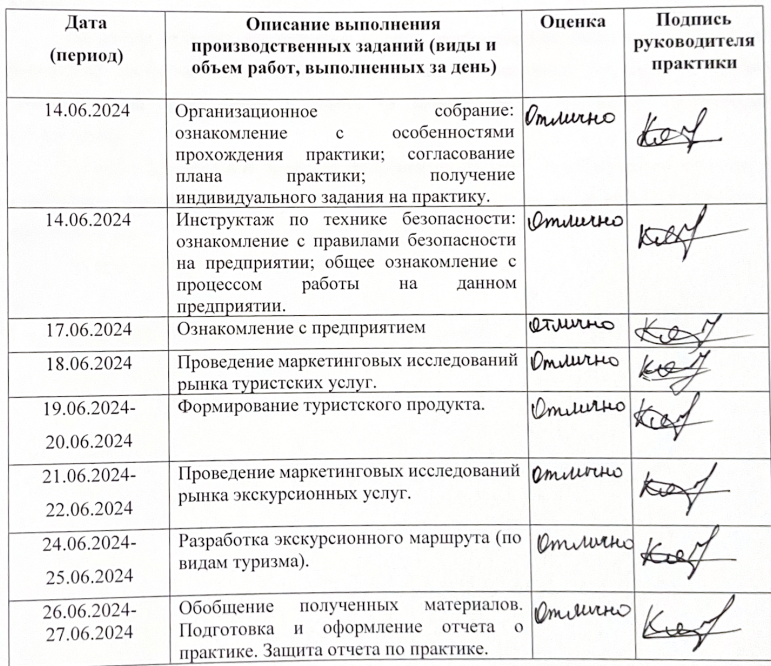 Дата
(период)
Описание выполнения
производственных заданий (виды и
объем работ, выполненных за день)
Оценка
Подпись
руководителя
практики
14.06.2024
Организационное собрание:
ознакомление с особенностями
прохождения практики; согласование
плана практики; получение
индивидуального задания на практику.
Отлично
14.06.2024
Инструктаж по технике безопасности:
ознакомление с правилами безопасности
на предприятии; общее ознакомление с
процессом работы на данном
предприятии.
Отлично
17.06.2024
Ознакомление с предприятием
Отлично
18.06.2024
Проведение маркетинговых исследований
рынка туристских услуг.
Отлично
19.06.2024-
20.06.2024
Формирование туристского продукта.
Отлично
21.06.2024-
22.06.2024
Проведение маркетинговых исследований
рынка экскурсионных услуг.
Отлично
24.06.2024-
25.06.2024
Разработка экскурсионного маршрута (по
видам туризма).
Отлично
26.06.2024-
27.06.2024
Обобщение полученных материалов.
Подготовка и оформление отчета о
практике. Защита отчета по практике.
Отлично